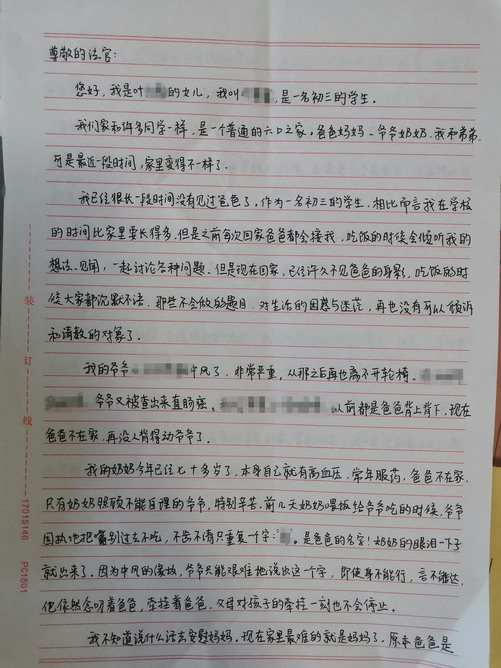 尊敬的法官:
您好,我是叶的女儿,我叫,是一名初三的学生。
我们家和许多同学一样,是一个普通的六口之家,爸爸妈妈、爷爷奶奶、我和弟弟,
可是最近一段时间,家里变得不一样了。
我已经很长一段时间没有见过爸爸了,作为一名初三的学生,相比而言我在学校
的时间比家里要长得多,但是之前每次回家爸爸都会接我,吃饭的时候会倾听我的
想法、见闻,一起讨论各种问题。但是现在回家,已经许久不见爸爸的身影,吃饭的时
候大家都沉默不语,那些不会做的题目、对生活的困惑与迷茫,再也没有可以倾诉
和请教的对象了。
我的爷爷中风了,非常严重,从那之后再也离不开轮椅。
爷爷又被查出来直肠癌。以前都是爸爸背上背下,现在
爸爸不在家,再没人背得动爷爷了。
我的奶奶今年已经七十多岁了,本身自己就有高血压,常年服药,爸爸不在家,
只有奶奶照顾不能自理的爷爷,特别辛苦。前几天奶奶喂饭给爷爷吃的时候,爷爷
固执地把嘴别过去不吃,不出不清只重复一个字:“”。是爸爸的名字!奶奶的眼泪一下子
就出来了。因为中风的缘故,爷爷只能艰难地说出这个字,即使身不能行,言不能达,
他依然念叨着爸爸,牵挂着爸爸,父母对孩子的牵挂一刻也不会停止。
我不知道说什么话去安慰妈妈,现在家里最难的就是妈妈了。原本爸爸是
装
订
线
17015146 PC1801